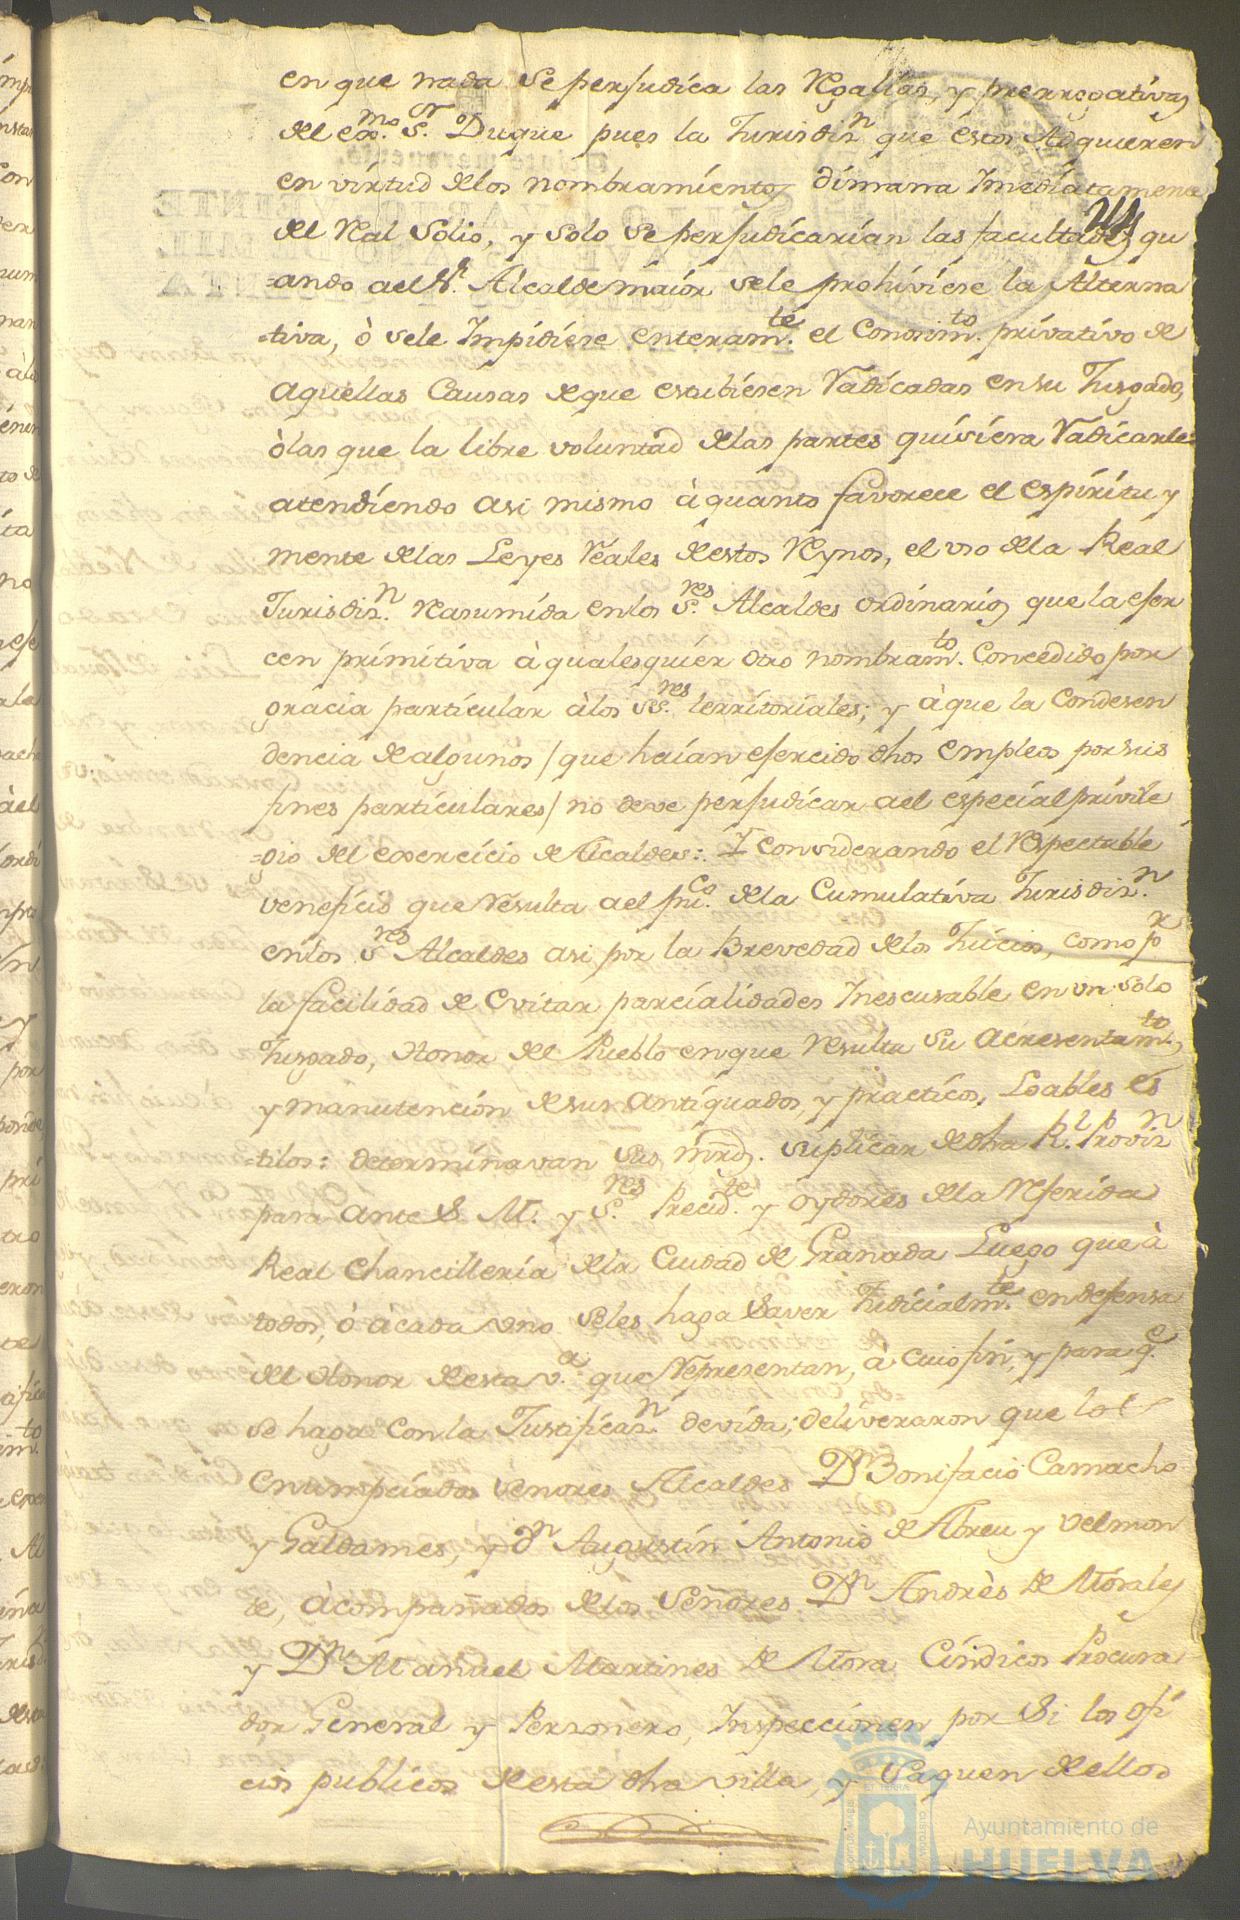 en que nada se perjudíca las Rgalías, y prerrogatívas
del exmo. Sr. Duque pues la Jurisdizn que éstos Adquieren
en vírtud delos nombramientos dímana Imediatamente
del Real Solio, y solo se perjudícarían las facultades qu
=ando ael Sr. Alcalde maíor sele prohiviese la Alterna
=tiva, ò sele Impidiese enteramte. el Conosimto. privatívo de
aquellas Causas deque estubiesen Radicadas ensu Jusgado,
òlas que la libre voluntad delas partes quisiera Radicarle:
atendiendo asi mismo à quanto favorece el espíritu y
mente delas Leyes Réales destos Rynos, el uso dela Real
Jurisdizn. Rasumída enlos Sres. Alcaldes ordínarios que la eser
cen primitiva à qualesquíer otro nombramto. Concedido por
gracia partícular àlos SSres. territoriales; y àque la Condesen
dencia dealgunos / que haían esercido dhos empleos porsus
fines partículares / no deve perjudicar ael especial privíle
=gio del exercício deAlcaldes: Y considerando el Respectable
veneficio que resulta ael puco. dela Cumulatíva Jurisdizn.
enlos Sres Alcaldes asi por la Brevedad delos Juicios, como pr
la facilidad de evitar parcialidades Inescusable en un solo
Jusgado, Honor del Pueblo enque resulta su acresentamto,
y manutencíon desus antíguados, y practícos, Loables es
=tilos: determínavan sus mrds. suplícar dedha Rl. Provizn
para ante S. M. y Sres. Precidte. y oydores dela Referida
Real Chancíllería dela Ciudad de Granada Luego que à
todos, ó àcada uno seles haga saver Judícialmte. endefensa
del Honor desta va. que Representan, à cuio fin, y para qe.
se haga con la Justificazn. devída; deliveraron que los
enunspciados señores Alcaldes Dn Bonifacio Camacho
y Galdames, y dn Augustín Antonio de Abreu y Velmon
te, àcompañados delos Señores Dn Andrès de Morales
y Dn Manuel Martines de Mora Cíndicos Procura
dor General y Personèro, Inspeccíonen por Si los ofi
cios publicos desta dha villa, y saquen dellos
Ayuntamiento de
HUELVA